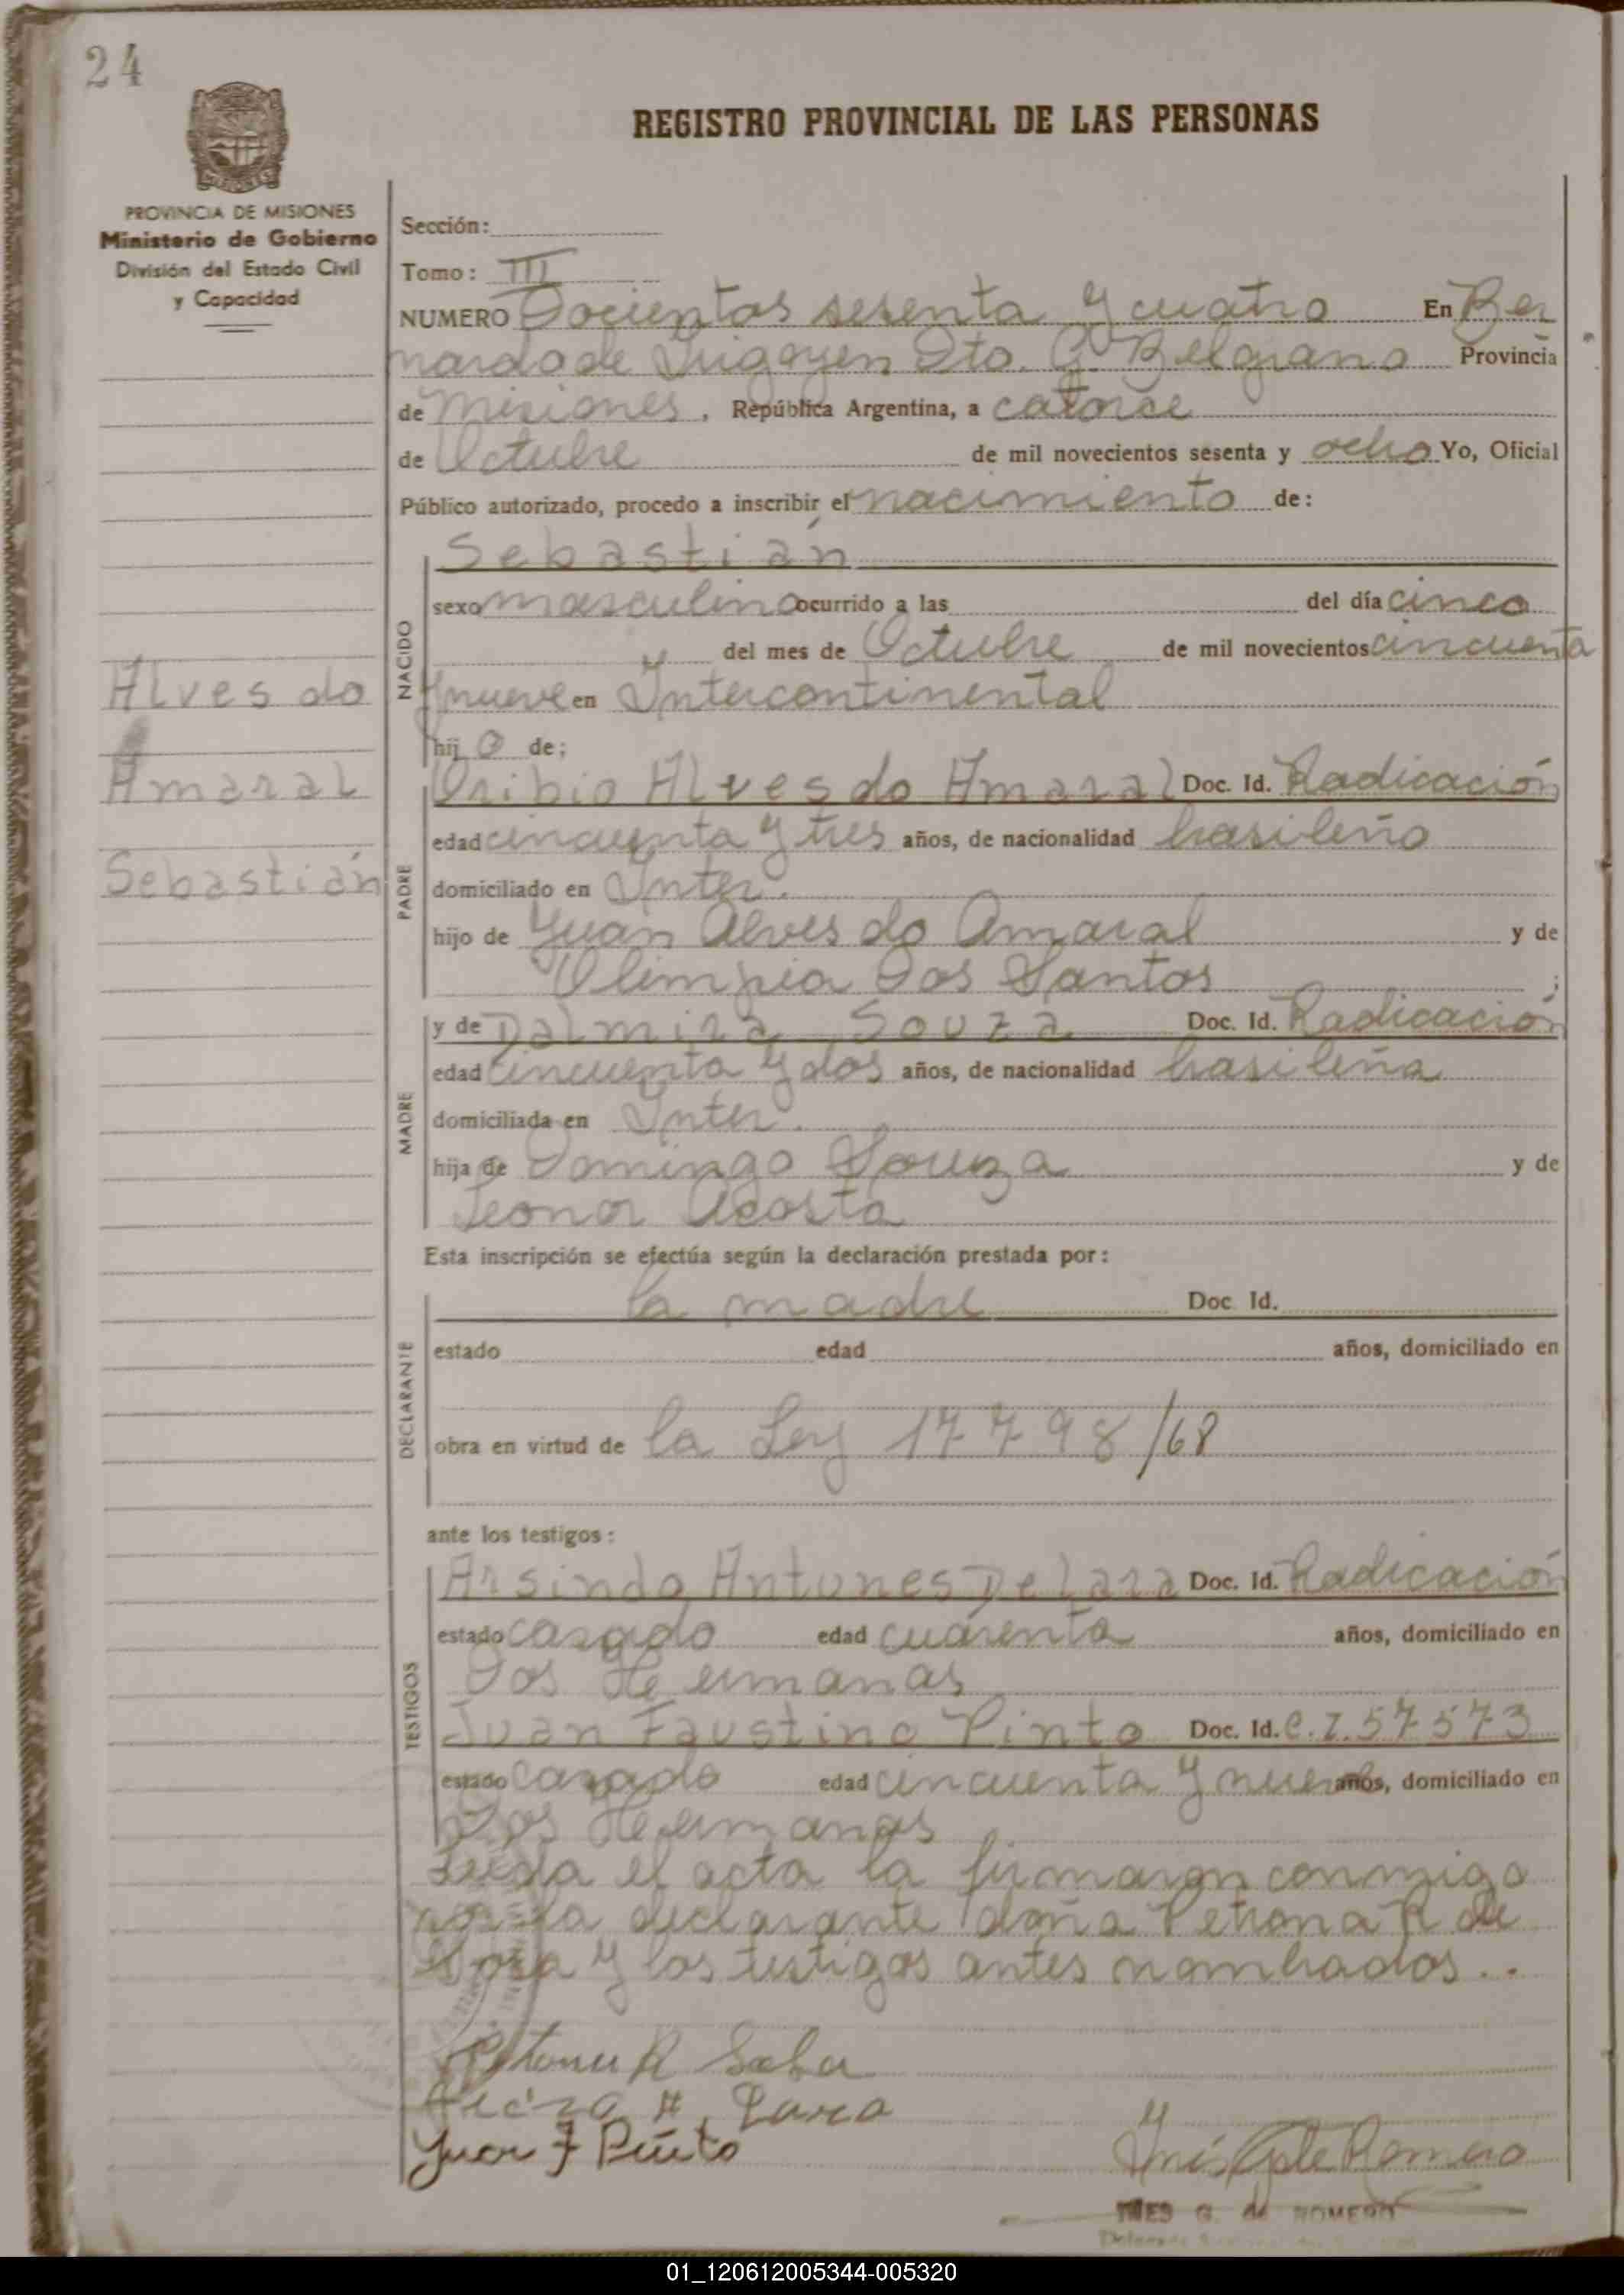 24
REGISTRO PROVINCIAL DE LAS PERSONAS
MISIONES
PROVINCIA DE MISIONES
Ministerio de Gobierno
División del Estado Civil
y Capacidad
Sección:
Tomo: III
NUMERO Docientos sesenta y cuatro En Ber
nardo de Irigoyen Dto. G. Belgrano Provincia
de Misiones, República Argentina, a catorce
de Octubre de mil novecientos sesenta y ocho Yo, Oficial
Público autorizado, procedo a inscribir el nacimiento de:
NACIDO
Sebastián
sexo masculino ocurrido a las del día cinco
del mes de Octubre de mil novecientos cincuenta
y nueve en Intercontinental
hijo de;
Alves do
Amaral
Sebastián
PADRE
Oribio Alves do Amaral Doc. Id. Radicación
edad cincuenta y tres años, de nacionalidad brasileño
domiciliado en Inter.
hijo de Juan Alves do Amaral y de
Olimpia Dos Santos ;
MADRE
y de Dalmira Souza Doc. Id. Radicación
edad cincuenta y dos años, de nacionalidad brasileña
domiciliada en Inter.
hija de Domingo Souza y de
Leonor Acosta
Esta inscripción se efectúa según la declaración prestada por:
DECLARANTE
la madre Doc. Id.
estado edad años, domiciliado en
obra en virtud de la Ley 17798/68
ante los testigos:
TESTIGOS
Arsindo Antunes De Lara Doc. Id. Radicación
estado casado edad cuarenta años, domiciliado en
Dos Hermanas
Juan Faustino Pinto Doc. Id. C.I. 57573
estado casado edad cincuenta y nueve años, domiciliado en
Dos Hermanas
Leida el acta la firmaron conmigo
por la declarante doña Petrona R de
y los testigos antes nombrados..
Petrona R
A. Lara
Juan F Pinto
Inés G de Romero
INES G. de ROMERO
01_120612005344-005320